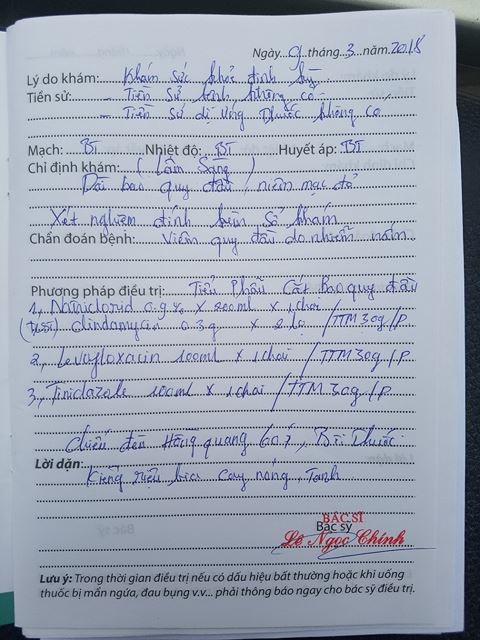 Ngày 9 tháng 3 năm 2018
Lý do khám: Khám sức khỏe định kỳ
Tiền sử: - Tiền sử bệnh không có
- Tiền sử dị ứng thuốc không có
Mạch: BT Nhiệt độ: BT Huyết áp: BT
Chỉ định khám: (Lâm Sàng)
Dài bao quy đầu, niêm mạc đỏ
Xét nghiệm đính kèm sổ khám
Chẩn đoán bệnh: Viêm quy đầu do nhiễm nấm
Phương pháp điều trị: Tiểu Phẫu Cắt Bao quy đầu
1, Natriclorid 0.9% x 200ml x 1 chai
clindamycin 0.3g x 2 lọ / TTM 30g/p
2, Levofloxacin 100ml x 1 chai / TTM 30g/p
3, Tinidazole 100ml x 1 chai / TTM 30g/p
Chiếu đèn Hồng quang 60%, Bôi thuốc
Lời dặn:
Kiêng rượu bia, cay nóng, Tanh
BÁC SĨ
Bác sỹ
Lê Ngọc Chính
Lưu ý: Trong thời gian điều trị nếu có dấu hiệu bất thường hoặc khi uống
thuốc bị mẩn ngứa, đau bụng v.v... phải thông báo ngay cho bác sỹ điều trị.